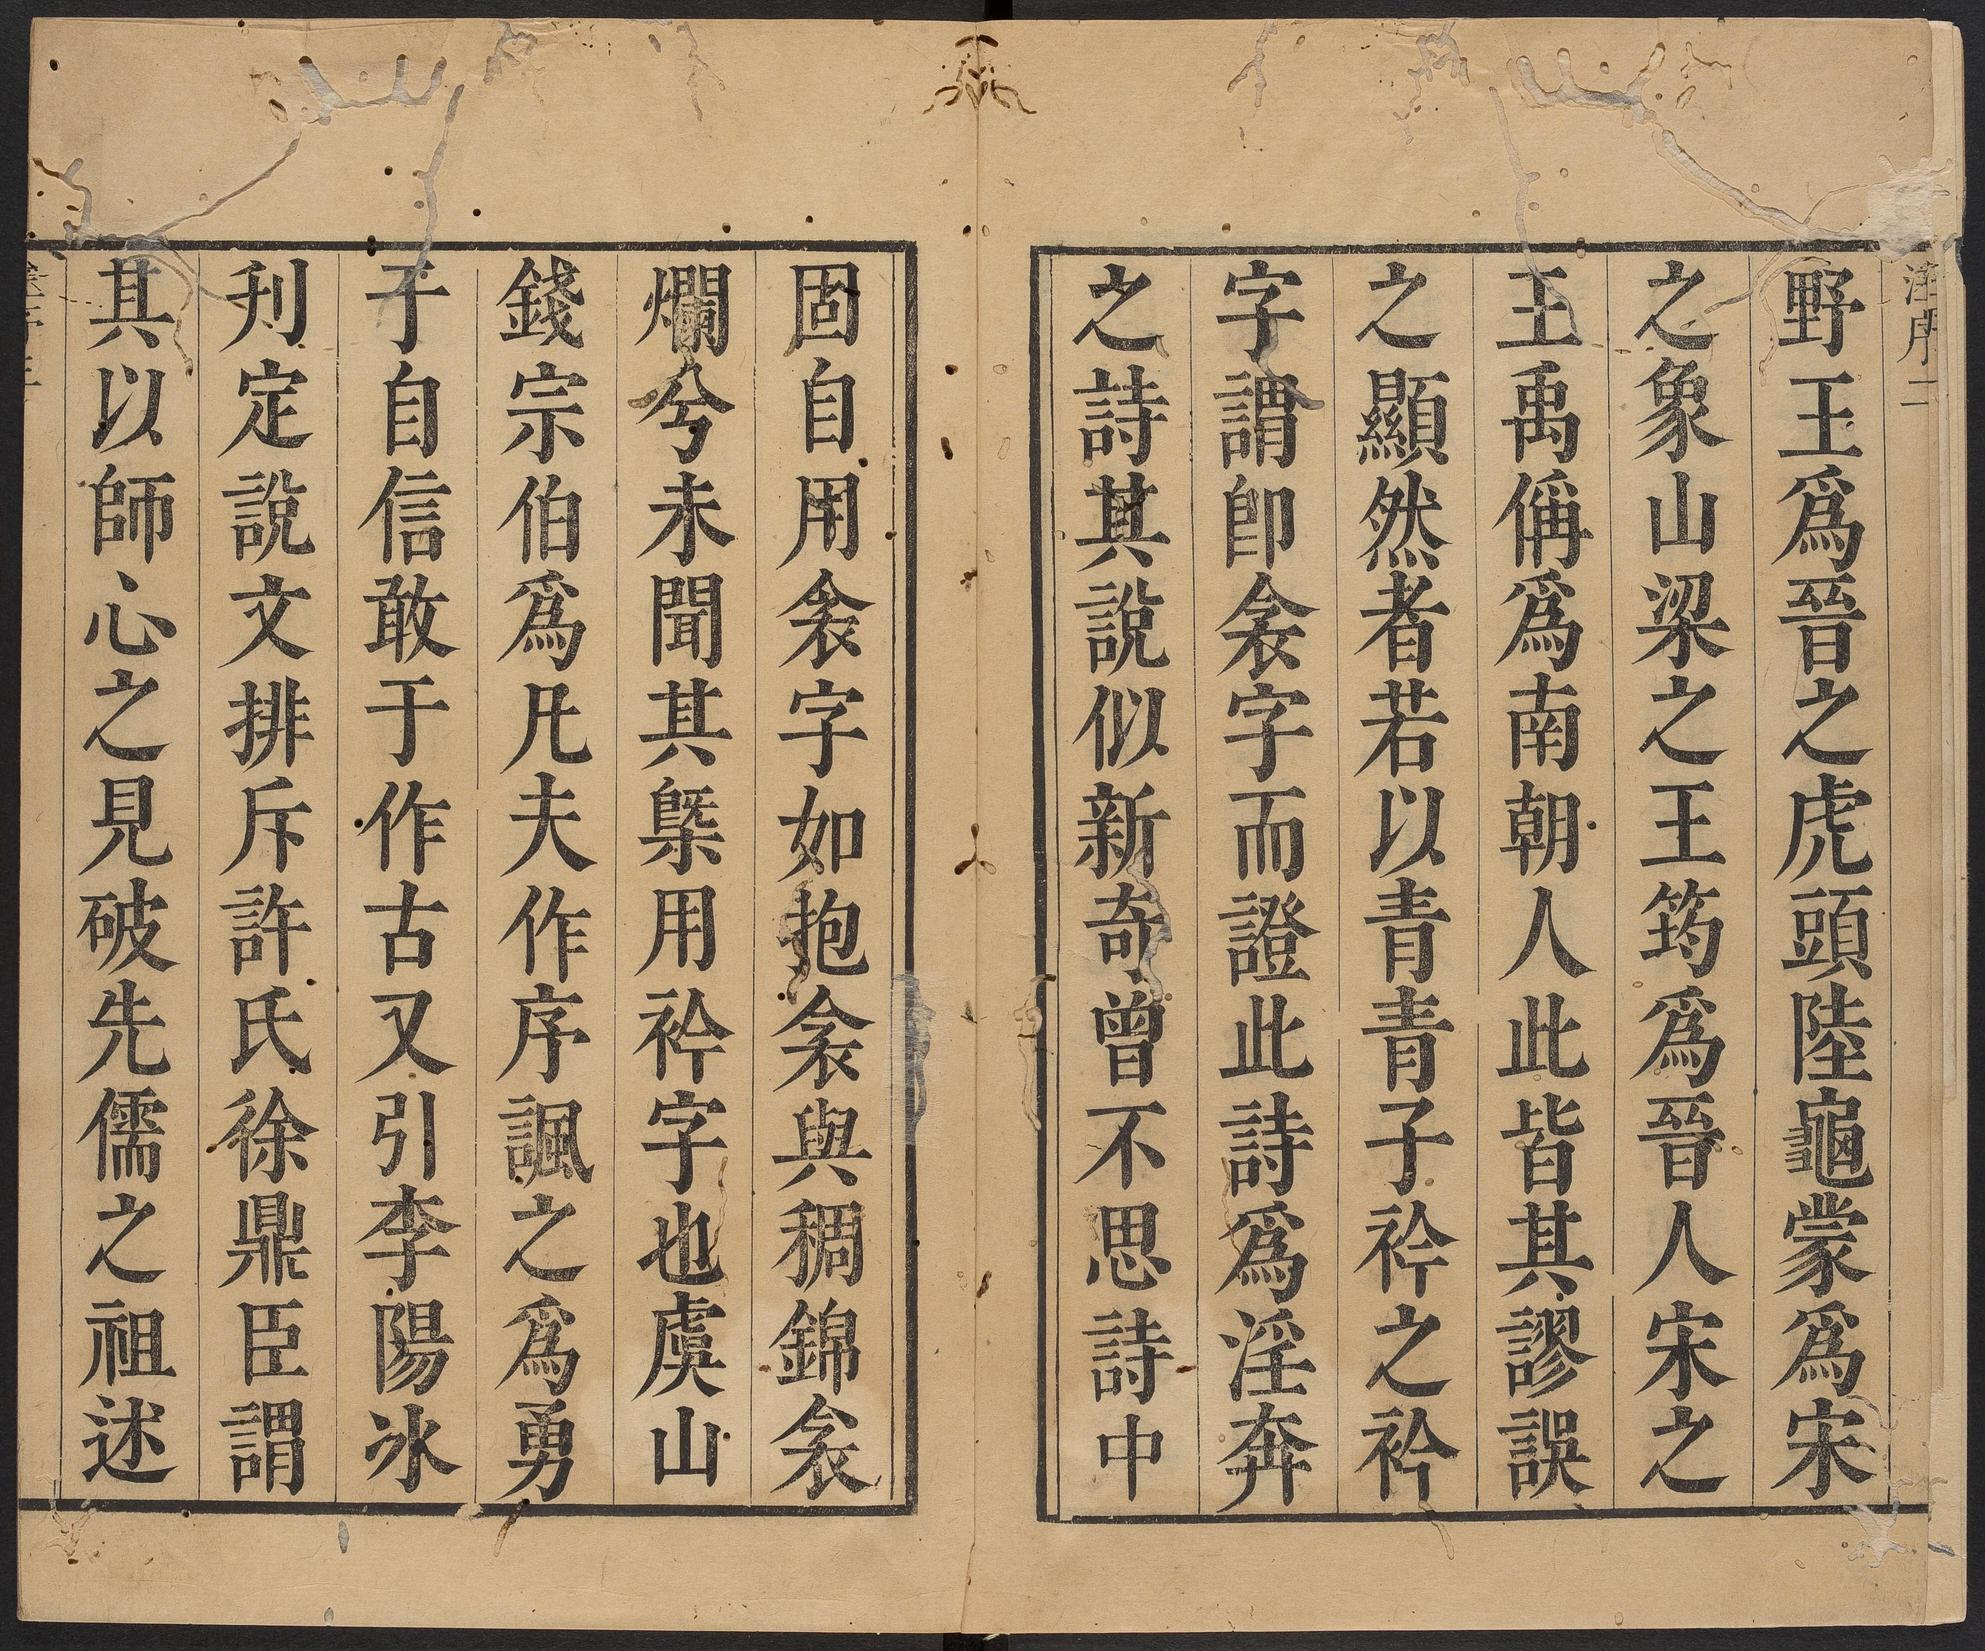 注序二
野王爲晉之虎頭陸龜蒙爲宋
之象山梁之王筠爲晉人宋之
王禹偁爲南朝人此皆其謬誤
之顯然者若以青青子衿之衿
字謂卽衾字而證此詩爲淫奔
之詩其說似新奇曾不思詩中
固自用衾字如抱衾與稠錦衾
爛兮未聞其槩用衿字也虞山
錢宗伯爲凡夫作序諷之爲勇
于自信敢于作古又引李陽冰
刋定說文排斥許氏徐鼎臣謂
其以師心之見破先儒之祖述